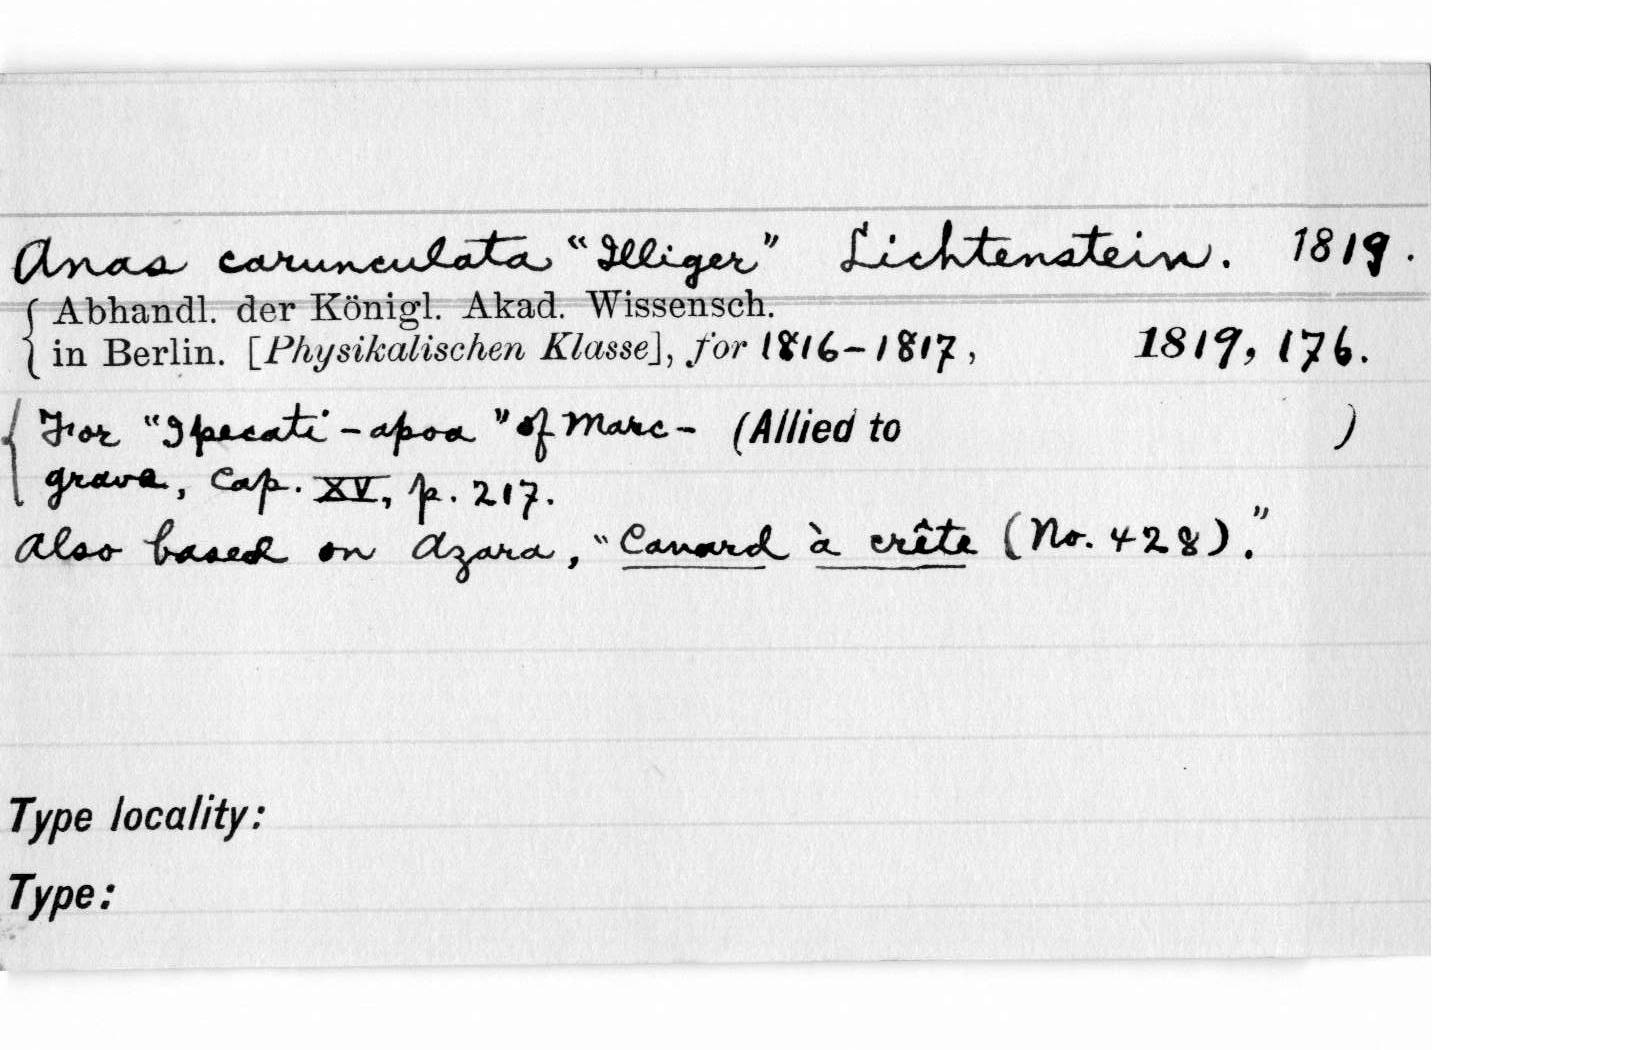 Anas carunculata "Illiger" Lichtenstein. 1819.
Abhandl. der Königl. Akad. Wissensch.
in Berlin. [Physikalischen Klasse], for 1816-1817, 1819, 176.
For "Ipecati-apoa" of Marc- (Allied to )
grave, Cap. XV, p. 217.
Also based on Azara, "Canard à crête (No. 428)."
Type locality:
Type: